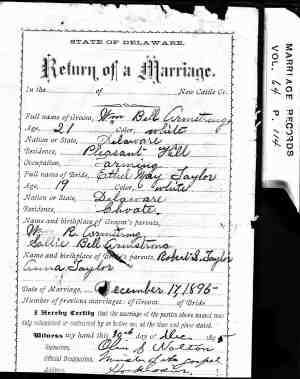 STATE OF DELAWARE.
Return of a Marriage.
In the of New Castle Co.
Full name of Groom, Wm Bell Armstrong
Age, 21 Color, white
Nation or State, Delaware
Residence, Pleasant Hill
Occupation, arming
Full name of Bride, Ethel Way Taylor
Age, 19 Color, white
Nation or State, Delaware
Residence, Choate.
Name and birthplace of Groom's parents,
Wm R. Armstrong
Sallie Bell Armstrong
Name and birthplace of Bride's parents, Robert S. Taylor
Anna Taylor
Date of Marriage, December 17, 1895
Number of previous marriages: of Groom of Bride
I Hereby Certify that the marriage of the parties above named was
duly solemnized or contracted by or before me, at the time and place stated.
Witness my hand this day of Dec. 5
Signature,
Official Designation, Minister of the Gospel
Address, Hockessin,
MARRIAGE RECORDS
VOL. 64 P. 114